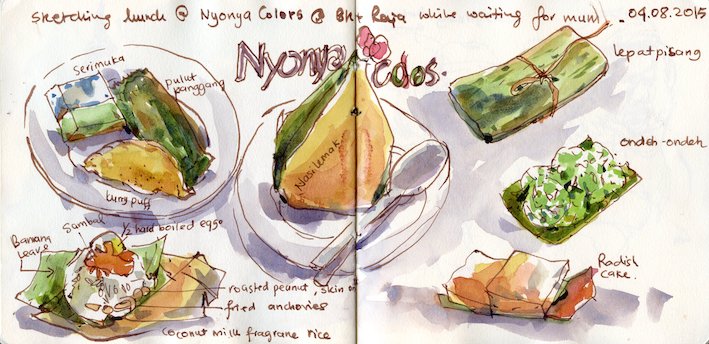 sketching lunch @ Nyonya Colors @ Bkt Raja while waiting for mum. 04.08.2015
Nyonya Colos.
serimuka
pulut panggang
curry puff
Nasi Lemak
lepat pisang
ondeh-ondeh
Radish cake.
Banana leave
Sambal
1/2 hard boiled eggs
roasted peanut, skin on
fried anchovies
coconut milk fragrane rice